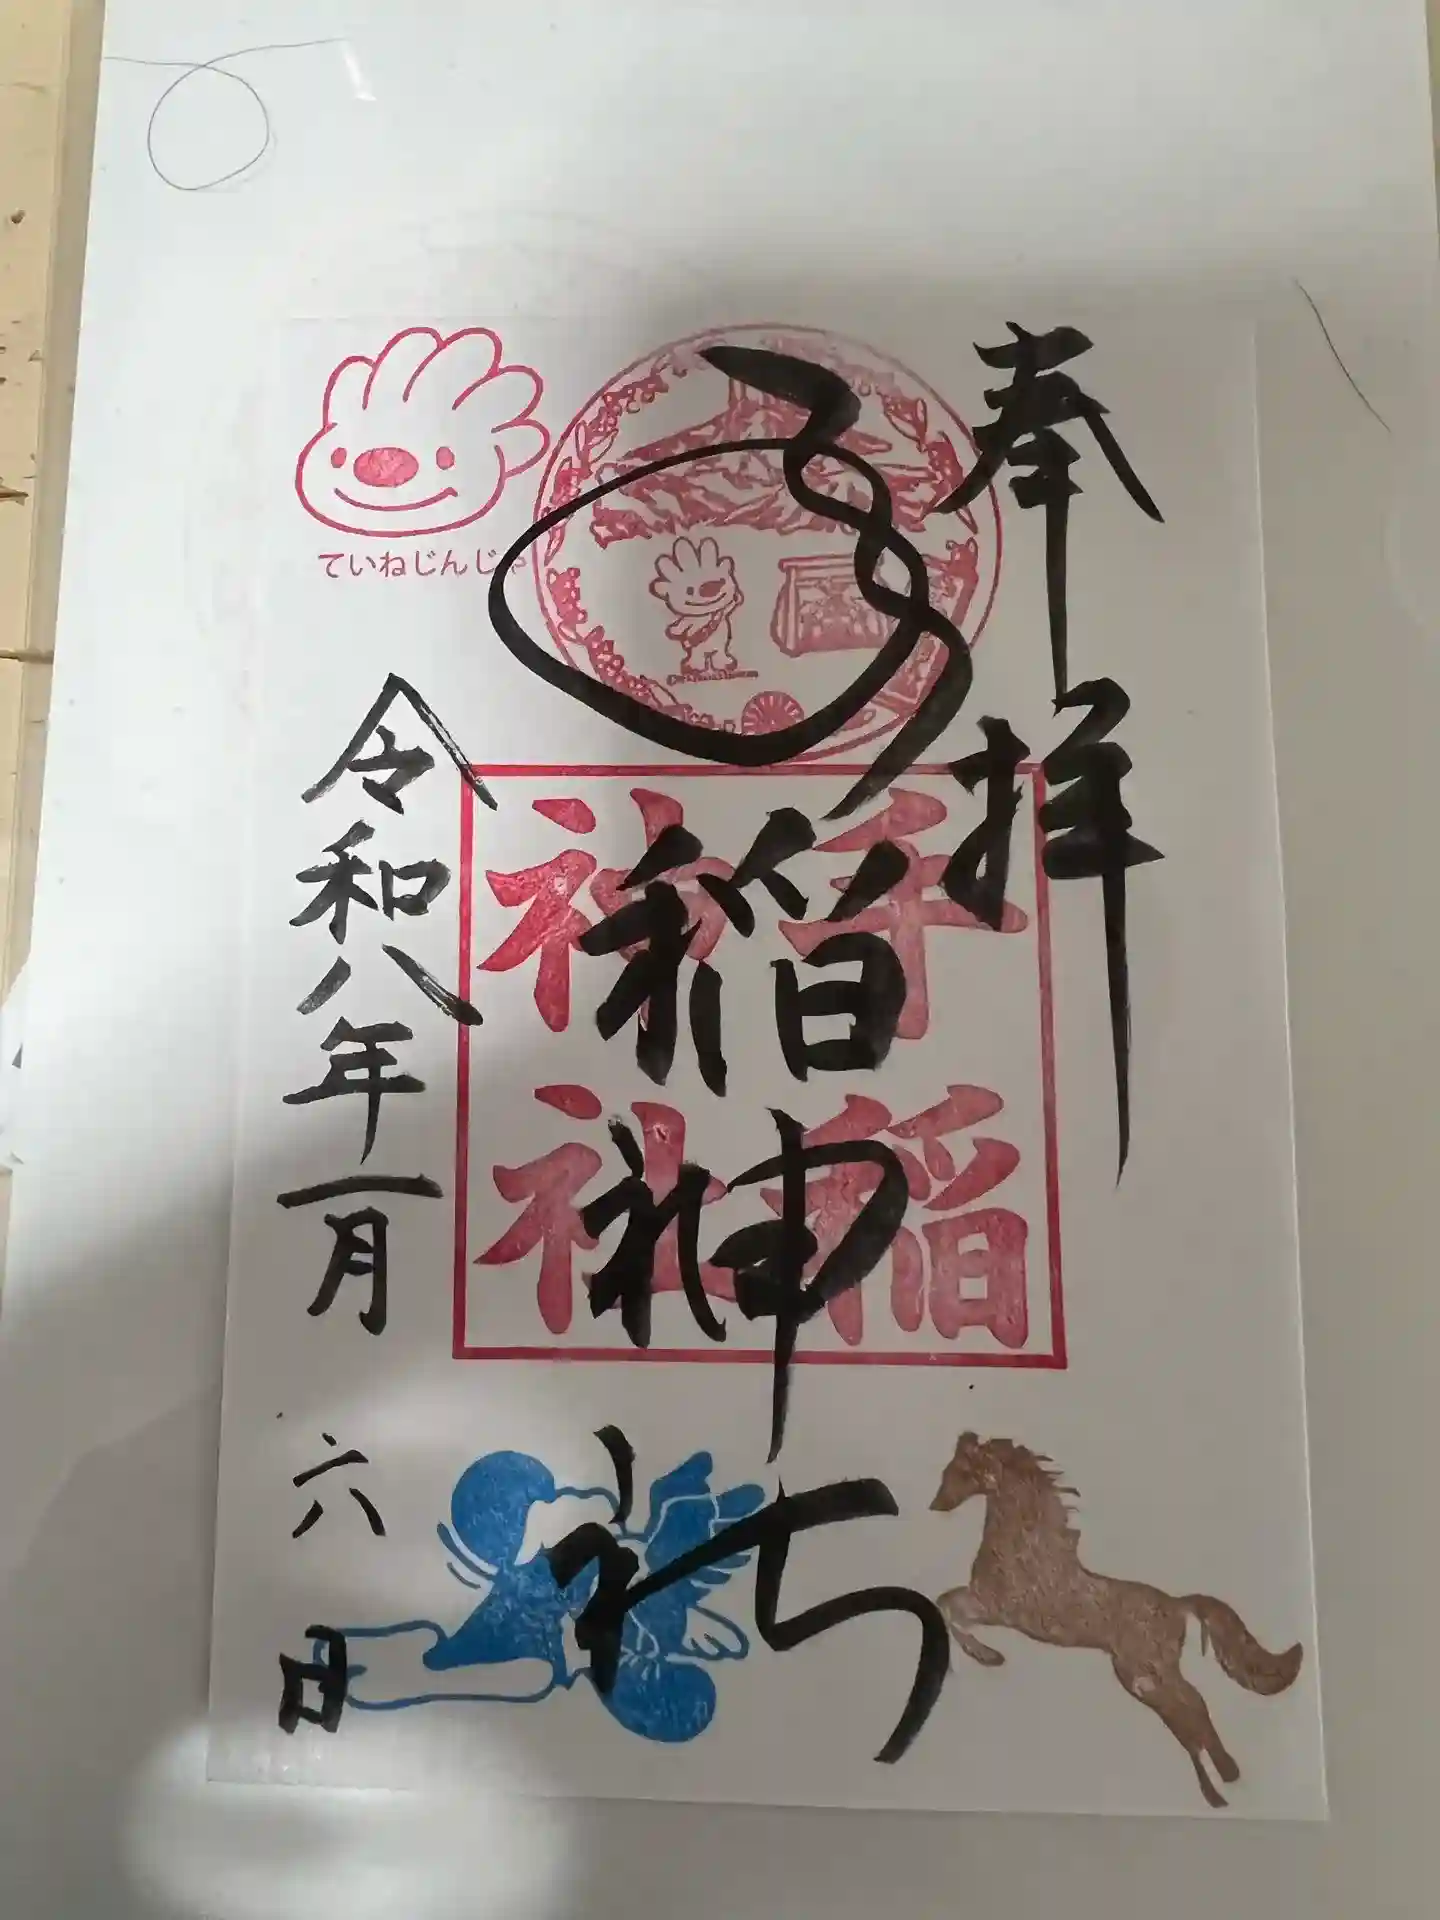 奉拝
手稲神社
手稲
神社
ていねじんじゃ
令和八年一月六日